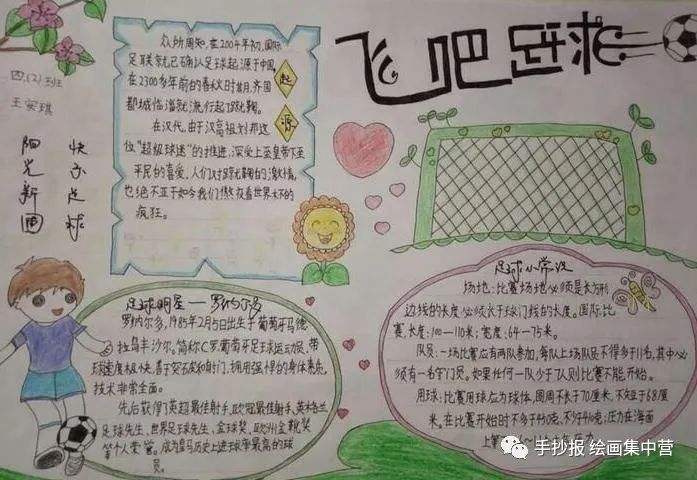 飞吧 球
四.(2)班
阳光新园
快乐足球
起源
众所周知,在2004年初,国际
足联就已确认足球起源于中国,
在2300多年前的春秋时期,齐国
都城临淄就流行起了蹴鞠。
在汉代,由于汉高祖刘邦这
位"超级球迷"的推进,深受上至皇帝下至
平民的喜爱,人们对蹴鞠的激情,
也绝不亚于如今我们熬夜看世界杯的
疯狂。
足球明星——罗纳尔多
罗纳尔多,1985年2月5日出生于葡萄牙马德
拉,乌丰沙尔,简称C罗,葡萄牙足球运动员,带
球速度极快,善于突破和射门,拥用强悍的身体素质,
技术非常全面。
先后获得了英超最佳射手,欧冠最佳射手,英格兰
足球先生,世界足球先生,金球奖,欧洲金靴奖
等个人荣誉。成为皇马历史上进球率最高的球
员。
足球小常识
场地:比赛场地必须是长方形
边线的长度必须长于球门线的长度。国际比
赛,长度:100—110米;宽度:64—75米。
队员:一场比赛应有两队参加,每队上场队员不得多于11名,其中必
须有一名守门员。如果任何一队少于7人则比赛不能开始。
用球:比赛用球应为球体,圆周不长于70厘米,不短于68厘
米,在比赛开始时不多于450克,不少于410克;压力在海面
上
手抄报 绘画集中营